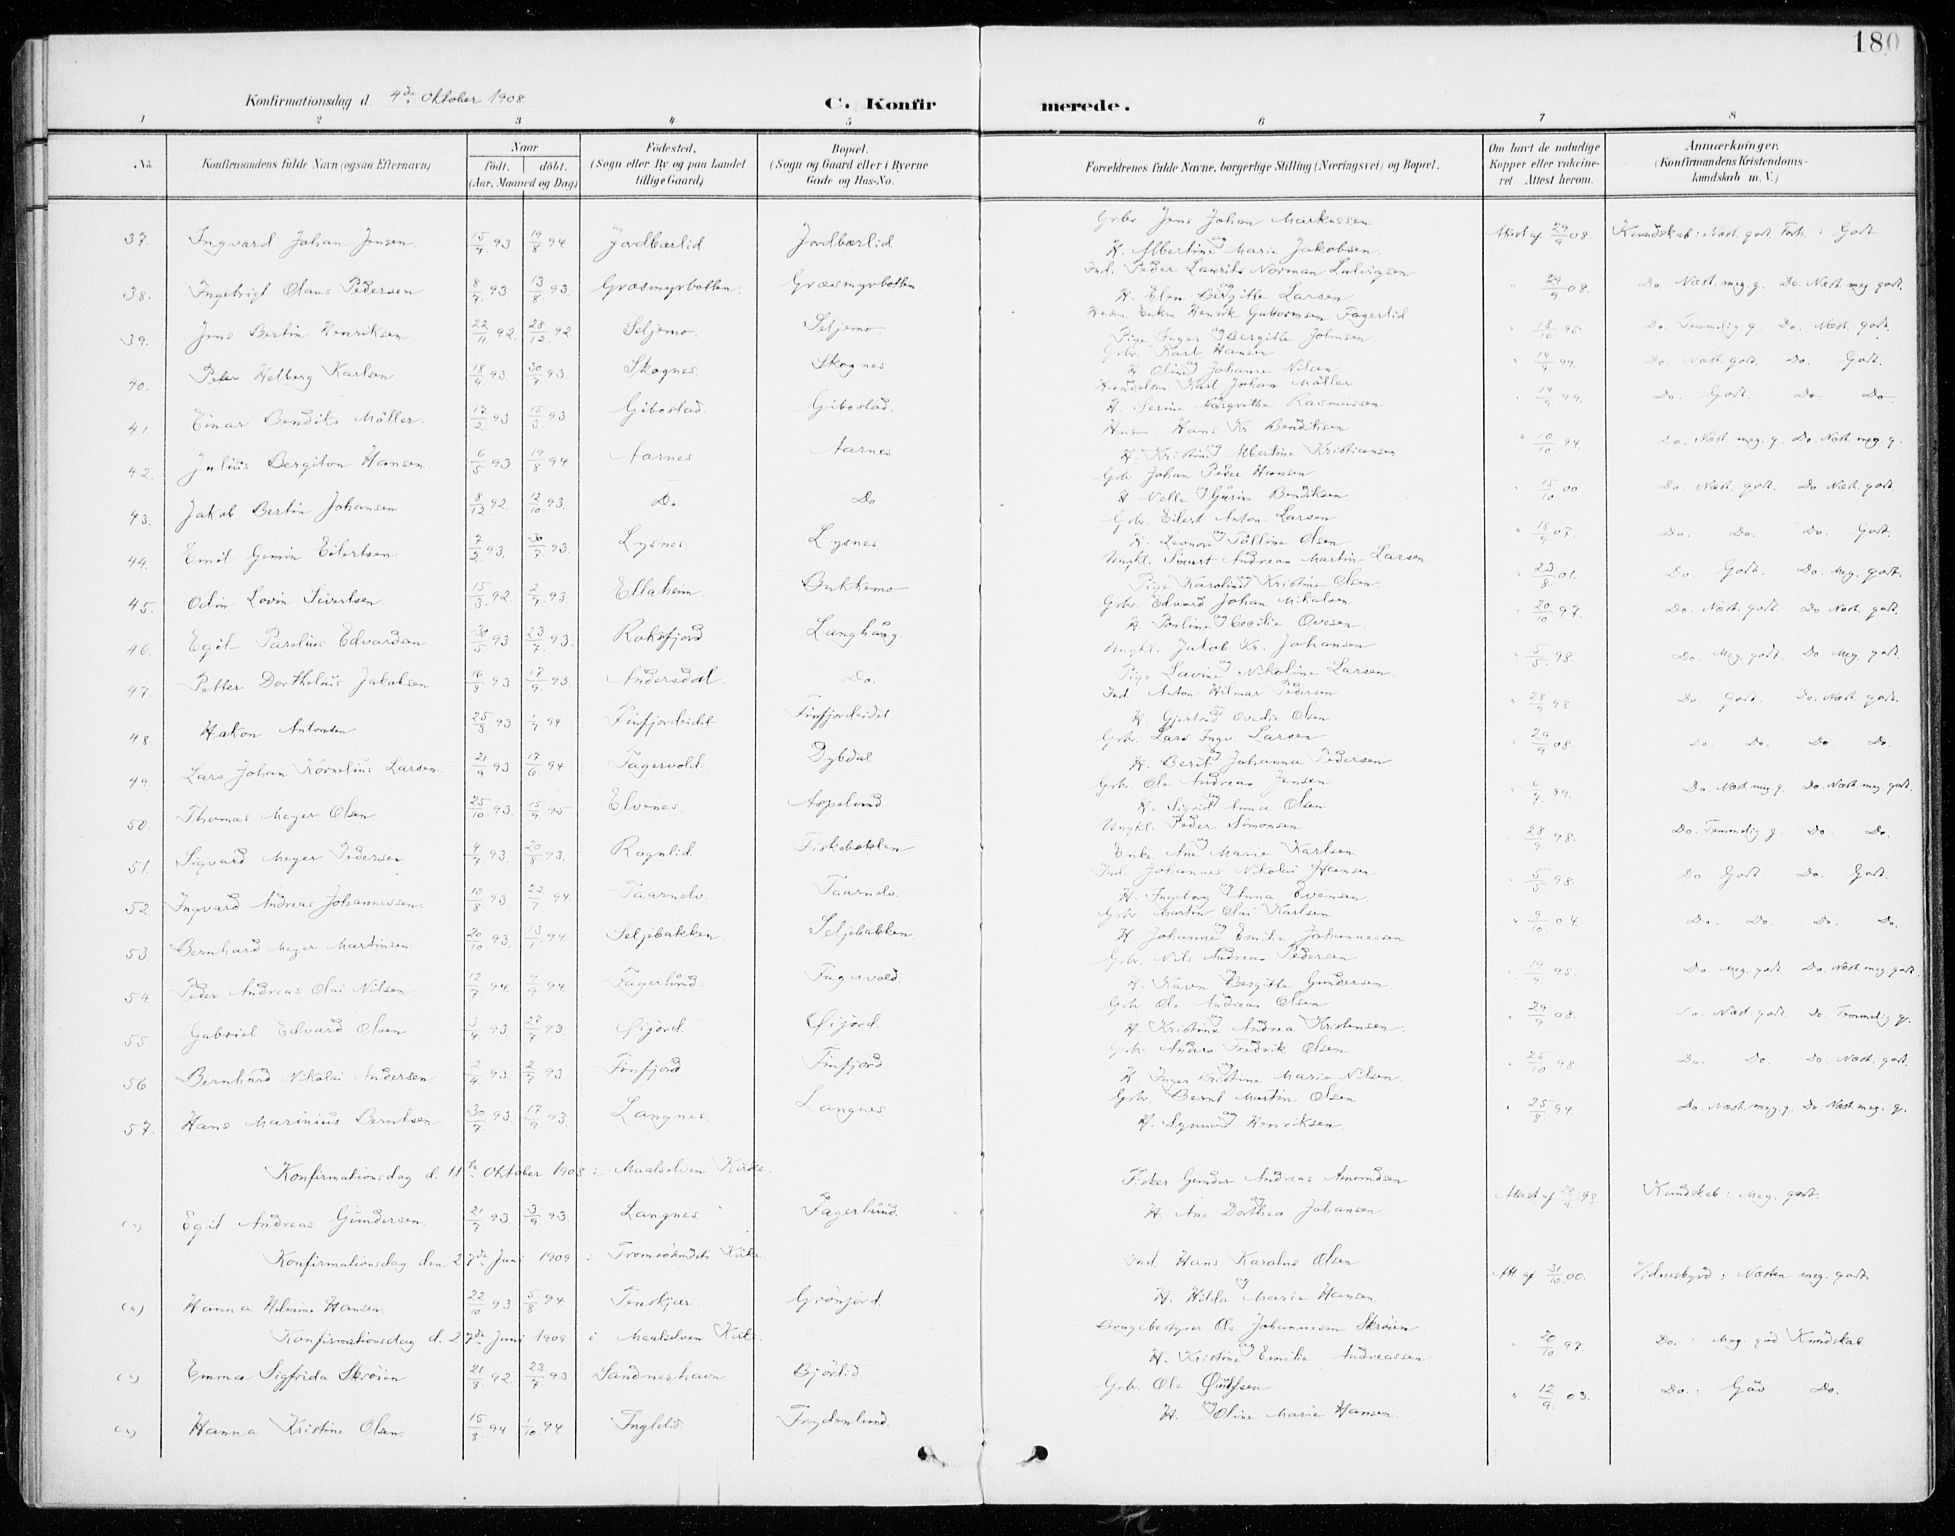 180
Konfirmationsdag d. 4de Oktober 1908
C. Konfirmerede.
1 2 3 4 5 6 7 8
No. Konfirmandens fulde Navn (ogsaa Efternavn) Naar født. døbt. (Aar, Maaned og Dag) Fødested. (Sogn eller By og paa Landet tillige Gaard) Bopæl. (Sogn og Gaard eller i Byerne Gade og Hus-No. Forældrenes fulde Navne, borgerlige Stilling (Næringsvei) og Bopæl. Om havt de naturlige Kopper eller vakcineret Attest herom. Anmærkninger. (Konfirmandens Kristendomskundskab m. V.)
37. Ingvard Johan Jensen. 15/7 93 19/8 94 Jordbærlid Jordbærlid Grbr. Jens Johan Markussen og H. Albertine Marie Jakobsen. Attest af 29/9 08 Kundskab: Næst. godt Forh.: Godt
38. Ingebrigt Olaus Pedersen 8/7 93 13/8 93. Græsmyrbotten. Græsmyrbotten Ind. Peder Laurits Norman Ludvigsen og H. Elen Bergitte Larsen " 29/9 08. Do. Næst. meg. g. Do. Næst meg godt.
39. Jens Bertin Henriksen 22/11 92. 28/12 92. Seljemo Seljemo Husm. Enkm Henrik Guttormsen Fagerlid og Pige Inger Bergitte Johnsen " 18/10 95. Do. Temmelig g. Do. Næst. godt.
40. Peter Helberg Karlsen 18/4 93 30/7 93 Skognes Skognes Grbr. Karl Hansen og H. Oline Johanne Nilsen " 14/9 99. Do. Næst godt Do. Godt.
41. Einar Bendiks Möller. 17/2 93 15/3 93. Gibostad. Gibostad. Handelsm Karl Johan Möller og H. Serine Margrethe Rasmussen " 14/9 99. Do. Godt. Do. Do.
42. Julius Bergiton Hansen. 6/5 93 19/8 94 Aarnes Aarnes Husm. Hans Kr. Bendiksen og H. Kristine Albertine Kristiansen. " 10/10 94. Do. Næst meg. g. Do. Næst meg. g.
43. Jakob Bertin Johansen 8/12 92. 12/10 93. Do. Do Grbr. Johan Peder Hansen og H. Nella Gurine Bendiksen " 15/10 00 Do. Næst. godt. Do Næst. godt.
44. Emil Gemin Eilertsen. 7/2 93. 30/7 93. Lysnes Lysnes Grbr. Eilert Anton Larsen og H. Leonore Pauline Olsen " 18/9 07. Do. Do. Do. Godt.
45. Odin Lovin Sivertsen. 15/3 92. 2/7 93 Ellaheim Bukkemo Ungkl. Sivert Andreas Martin Larsen og Pige Karoline Kristine Olsen. " 23/8 01. Do. Godt. Do. Meg. godt.
46. Egil Parelius Edvardsen 30/5 93 23/7 93. Roksfjord Langhaug Grbr. Edvard Johan Mikalsen og H. Pauline Cecilie Ovesen. " 20/10 97. Do. Næst. godt. Do Næst. godt.
47. Petter Dorthelius Jakobsen 16/8 93 17/9 93. Andersdal. Do. Ungkl. Jakob Kr. Johansen og Pige Lavine Nikoline Larsen " 5/5 98. Do. Meg. godt. Do. Meg. godt.
48. Hakon Antonsen 25/8 93 1/7 94 Finfjordeidet Finfjordeidet. Ind. Anton Hilmar Pedersen og H. Gjertrud Ovedie Olsen " 28/9 98 Do. Godt. Do. Næst godt
49. Lars Johan Kornelius Larsen. 21/9 93 17/6 94 Fagervold. Dybdal Grbr. Lars Ingv. Larsen og H. Berit Johanna Pedersen " 29/9 08. Do. Do. Do. Do.
50. Thomas Meyer Olsen 25/10 93. 15/9 95 Elvenes. Aspelund Grbr. Ole Andreas Jensen og H. Sigrid Anna Olsen " 6/7 99. Do. Næst meg. g. Do. Næst meg. godt.
51. Sigvard Meyer Pedersen 4/7 93. 20/8 93. Rognlid. Fiskebakken Ungkl. Peder Simonsen og Enke Ane Marie Karlsen " 28/9 98. Do. Temmelig g. Do. Do.
52. Ingvard Andreas Johannessen. 10/8 93 22/7 94. Taarnelv. Taarnelv. Ind. Johannes Nikolai Hansen og H. Ingeborg Anna Evensen " 5/5 98. Do Godt. Do. Godt.
53. Bernhard Meyer Martinsen 20/10 93. 13/7 94 Seljebakken. Seljebakken Grbr. Martin Olai Karlsen og H. Johanne Emilie Johannessen. " 9/10 04. Do. Do. Do. Do.
54. Peder Andreas Olai Nilsen 12/7 94. 9/9 94 Fagerlund. Fagervold. Grbr. Nils Andreas Pedersen og H. Karen Bergitte Gundersen " 19/9 95 Do Meg. godt Do. Næst meg. godt.
55. Gabriel Edvard Olsen 3/4 93 27/7 93. Øijord. Øijord. Grbr. Ole Andreas Olsen og H. Kristine Andrea Kristensen. " 29/9 08. Do. Næst godt. Do. Temmelig g.
56 Bernhard Nikolai Andersen 2/4 93 2/7 93 Finfjord Finfjord. Grbr. Anders Fredrik Olsen og H Inger Kristine Marie Nilsen. " 25/10 98 Do. Do. Do. Næst. godt.
57. Hans Marinius Berntsen 30/7 93. 17/9 93. Langnes. Langnes Grbr. Bernt Martin Olsen og H. Synnøva Henriksen. " 25/8 94. Do. Næst. meg. g. Do. Næst meg. g.
Konfirmationsdag d. 11te Oktober 1908 i Maalselven Kirke.
Egil Andreas Gundersen. 21/7 93. 3/9 93. Langnes Fagerlund. Fisker Gunder Andreas Amundsen og H. Ane Dorthea Johansen Attest af 28/9 98 Kundskab: Meg. godt.
Konfirmationsdag den 27de Juni 1909 i Tromsøsundets Kirke
Hanna Helmine Hansen. 22/10 93 5/8 94 Tenskjær. Grönjord. Ind. Hans Karolus Olsen og H. Hilda Marie Hansen. Att. af 31/10 00. Vidnesbyrd: Næsten meg. godt.
Konfirmationsdag d. 27de Juni 1909 i Maalselven Kirke.
Emma Sigfrida Skröien 21/8 92. 23/7 93 Sandneshavn Björlid. Brugsbestyrer Ole Johannesen Skröien og H. Kristine Emilie Andreassen. " 20/10 97. Do.: Meg. god Kundskab
Hanna Kristine Olsen. 15/8 94 1/10 94 Inglelid. Frydenlund. Grbr. Ole Olufsen og H. Oline Marie Hansen. " 12/9 03. Do.: God Do.